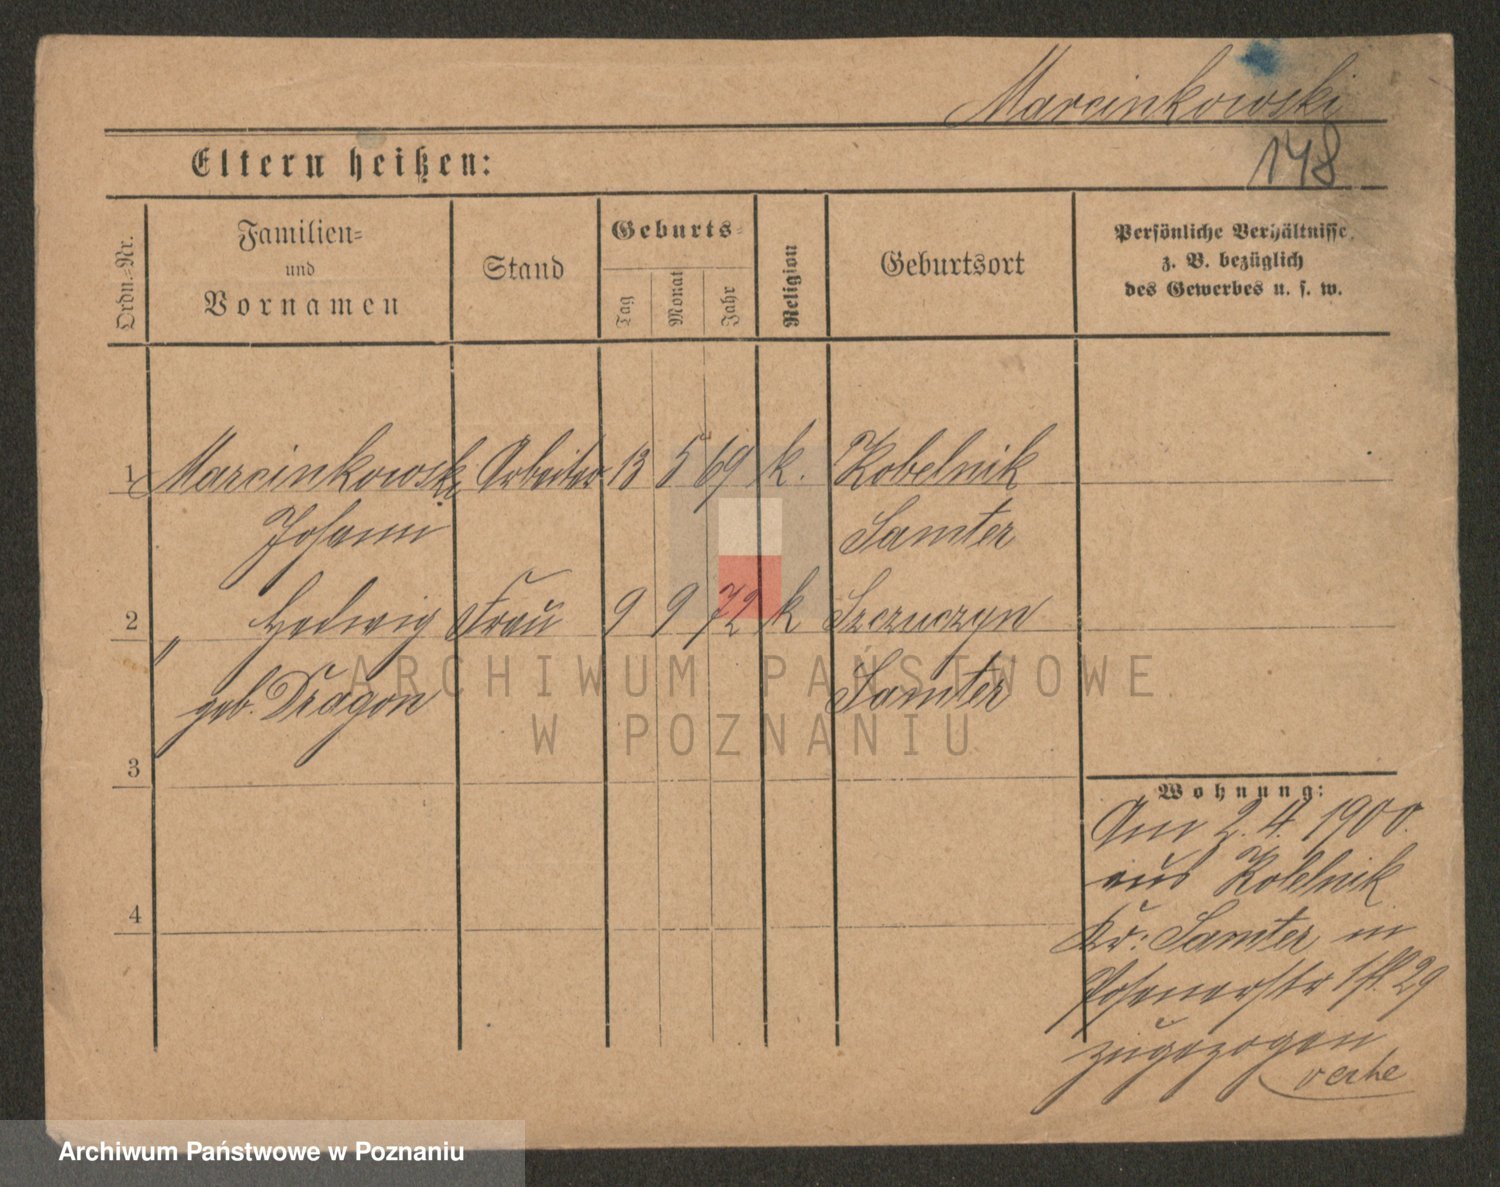 Marcinkowski
148
Eltern heißen:
Ordn.-Nr.
Familien-
und
Vornamen
Stand
Geburts-
Tag
Monat
Jahr
Religion
Geburtsort
Persönliche Verhältnisse,
z. B. bezüglich
des Gewerbes u. s. w.
1 Marcinkowski Arbeiter 13 5 69 k. Kobelnik
Johann Samter
2 " Hedwig Frau 9 9 72 k Szczuczyn
geb. Dragon Samter
3
4
Wohnung:
Am 2. 4. 1900.
aus Kobelnik
Kr: Samter in
Posenerstr 29
zugezogen
ARCHIWUM PAŃSTWOWE
W POZNANIU
Archiwum Państwowe w Poznaniu